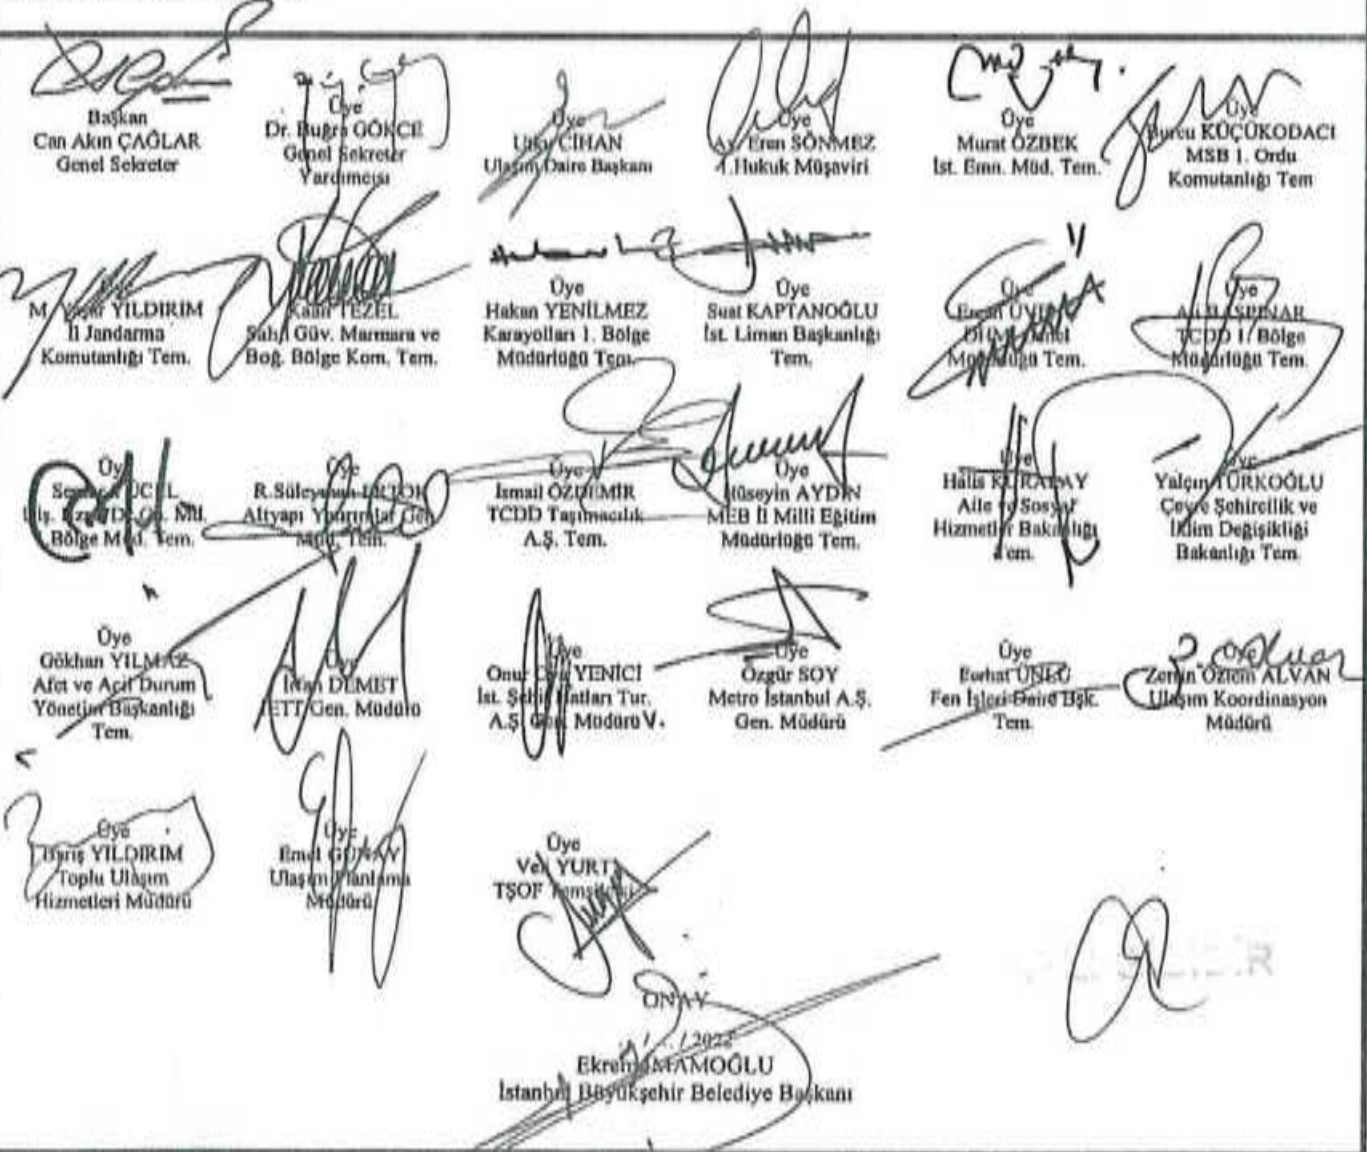 Başkan
Can Akın ÇAĞLAR
Genel Sekreter
Üye
Dr. Buğra GÖKCE
Genel Sekreter
Yardımcısı
Üye
Utku CİHAN
Ulaşım Daire Başkanı
Üye
Av. Eren SÖNMEZ
1.Hukuk Müşaviri
Üye
Murat ÖZBEK
İst. Emn. Müd. Tem.
Üye
Burcu KÜÇÜKODACI
MSB 1. Ordu
Komutanlığı Tem
M. YILDIRIM
İl Jandarma
Komutanlığı Tem.
Kaan TEZEL
Sahil Güv. Marmara ve
Boğ. Bölge Kom. Tem.
Üye
Hakan YENİLMEZ
Karayolları 1. Bölge
Müdürlüğü Tem.
Üye
Suat KAPTANOĞLU
İst. Liman Başkanlığı
Tem.
Üye
Tem.
Üye
TCDD 1. Bölge
Müdürlüğü Tem.
Üye
Bölge Müd. Tem.
Üye
R.Süleyman
Altyapı Yatırımlar Gen.
Müd. Tem.
Üye
İsmail ÖZDEMİR
TCDD Taşımacılık
A.Ş. Tem.
Üye
Hüseyin AYDIN
MEB İl Milli Eğitim
Müdürlüğü Tem.
Üye
Halis
Aile ve Sosyal
Hizmetler Bakanlığı
Tem.
Üye
Yalçın TÜRKOĞLU
Çevre Şehircilik ve
İklim Değişikliği
Bakanlığı Tem.
Üye
Gökhan YILMAZ
Afet ve Acil Durum
Yönetim Başkanlığı
Tem.
Üye
İrfan DEMET
İETT Gen. Müdürü
Üye
Onur YENİCİ
İst. Şehir Hatları Tur.
A.Ş. Gen. Müdürü V.
Üye
Özgür SOY
Metro İstanbul A.Ş.
Gen. Müdürü
Üye
Ferhat ÜNLÜ
Fen İşleri Daire Bşk.
Tem.
Üye
Zerrin Özlem ALVAN
Ulaşım Koordinasyon
Müdürü
Üye
Barış YILDIRIM
Toplu Ulaşım
Hizmetleri Müdürü
Üye
Emel GÜNAY
Ulaşım Planlama
Müdürü
Üye
YURT
TŞOF Temsilcisi
ONAY
Ekrem İMAMOĞLU
İstanbul Büyükşehir Belediye Başkanı